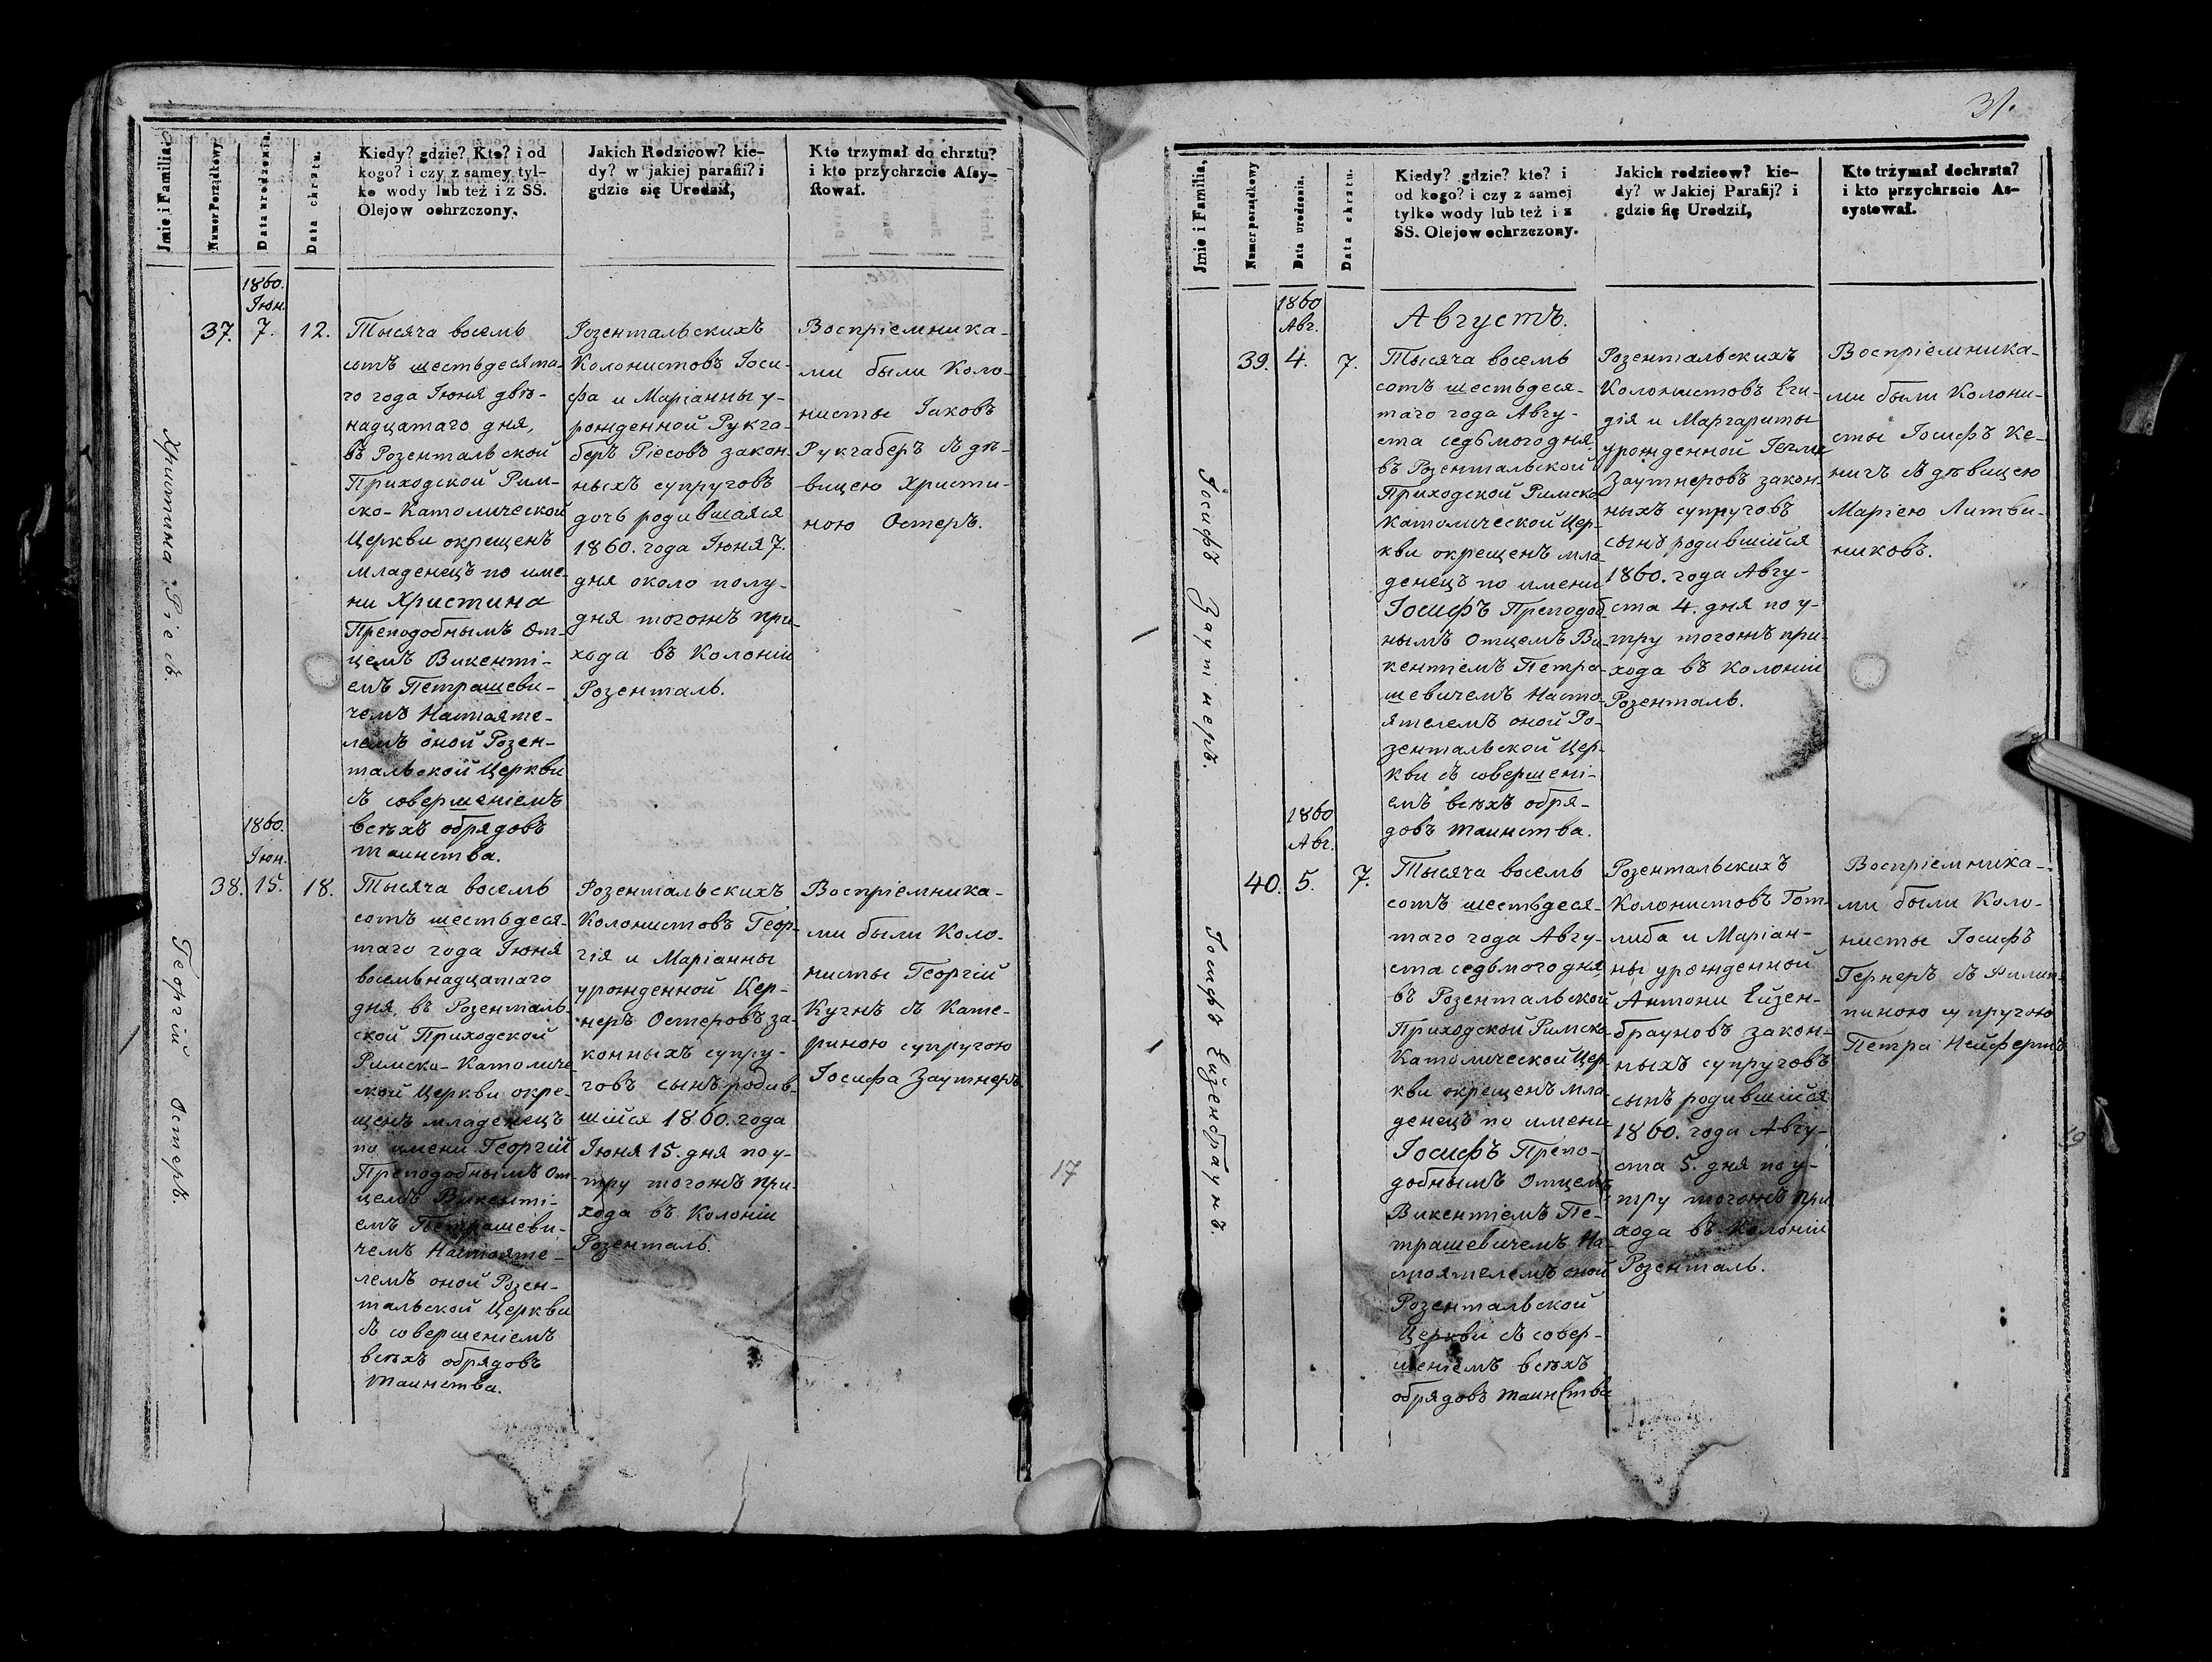 Jmie i Familia.
Numer Porządkowy
Data urodzenia.
Data chrztu.
Kiedy? gdzie? Kto? i od
kogo? i czy z samey tyl-
ko wody lub też i z SS.
Olejow ochrzczony.
Jakich Rodzicow? kie-
dy? w jakiej parafii? i
gdzie się Urodził,
Kto trzymał do chrztu?
i kto przychrzcie Assy-
stował.
Христина Ріесъ.
37.
1860.
Іюн.
7.
12.
Тысяча восемь
сотъ шестьдесята-
го года Іюня двѣ-
надцатаго дня,
въ Розентальской
Приходской Рим-
ско-Католической
Церкви окрещенъ
младенецъ по име-
ни Христина
Преподобнымъ От-
цемъ Викенті-
емъ Петрашеви-
чемъ Настояте-
лемъ оной Розен-
тальской Церкви
съ совершеніемъ
всѣхъ обрядовъ
таинства.
Розентальскихъ
Колонистовъ Іоси-
фа и Маріанны у-
рожденной Рукга-
беръ Ріесовъ закон-
ныхъ супруговъ
дочь родившаяся
1860. года Іюня 7.
дня около полу-
дня тогожъ при-
хода въ Колоніи
Розенталь.
Воспріемника-
ми были Коло-
нисты Іаковъ
Рукгаберъ съ дѣ-
вицею Христи-
ною Остеръ.
Георгій Остеръ.
38.
1860.
Іюн.
15.
18.
Тысяча восемь
сотъ шестьдеся-
таго года Іюня
восемьнадцатаго
дня, въ Розенталь-
ской Приходской
Римско-Католиче
ской Церкви окре-
щенъ младенецъ
по имени Георгій
Преподобнымъ От-
цемъ Викенті-
емъ Петрашеви-
чемъ Настояте-
лемъ оной Розен-
тальской Церкви
съ совершеніемъ
всѣхъ обрядовъ
таинства.
Розентальскихъ
Колонистовъ Геор-
гія и Маріанны
урожденной Кер-
неръ Остеровъ за-
конныхъ супру-
говъ сынъ родив-
шійся 1860. года
Іюня 15. дня по у-
тру тогожъ при-
хода въ Колоніи
Розенталь.
Воспріемника-
ми были Коло-
нисты Георгій
Кугнъ съ Кате-
риною супругою
Іосифа Заутнеръ.
17
31.
Jmie i Familia,
Numer porządkowy
Data urodzenia.
Data chrztu.
Kiedy? gdzie? kto? i
od kogo? i czy z samej
tylko wody lub też i z
SS. Olejow ochrzczony.
Jakich rodzicow? kie-
dy? w Jakiej Parafij? i
gdzie się Urodził,
Kto trżymał dochrzta?
i kto przychrzcie As-
systował.
Іосифъ Заутнеръ.
39.
1860
Авг.
4.
7.
Августъ.
Тысяча восемь
сотъ шестьдеся-
таго года Авгу-
ста седьмого дня,
въ Розентальской
Приходской Римско
католической Цер-
кви окрещенъ мла
денецъ по имени
Іосифъ Преподоб
нымъ Отцемъ Ви-
кентіемъ Петра-
шевичемъ Насто-
ятелемъ оной Ро-
зентальской Цер-
кви съ совершені-
емъ всѣхъ обря-
довъ таинства.
Розентальскихъ
Колонистовъ Еги-
дія и Маргариты
урожденной
Заутнеровъ закон
ныхъ супруговъ
сынъ родившійся
1860. года Авгу-
ста 4. дня по у-
тру тогожъ при-
хода въ Колоніи
Розенталь.
Воспріемника-
ми были Колони-
сты Іосифъ Ке-
ничъ съ дѣвицею
Маріею Литви-
никовъ.
Іосифъ Ейзенбраунъ.
40.
1860
Авг.
5.
7.
Тысяча восемь
сотъ шестьдеся-
таго года Авгу-
ста седьмого дня
въ Розентальской
Приходской Римско
Католической Цер-
кви окрещенъ мла-
денецъ по имени
Іосифъ Препо-
добнымъ Отцемъ
Викентіемъ Пе-
трашевичемъ На-
стоятелемъ оной
Розентальской
Церкви съ совер-
шеніемъ всѣхъ
обрядовъ таинства
Розентальскихъ
Колонистовъ Гот-
либа и Маріан-
ны урожденной
Антони Ейзен-
брауновъ закон-
ныхъ супруговъ
сынъ родившійся
1860. года Авгу-
ста 5. дня по у-
тру тогожъ при
хода въ Колоніи
Розенталь.
Воспріемника-
ми были Коло-
нисты Іосифъ
Гернеръ съ Филип-
пиною супругою
Петра Нейфертъ